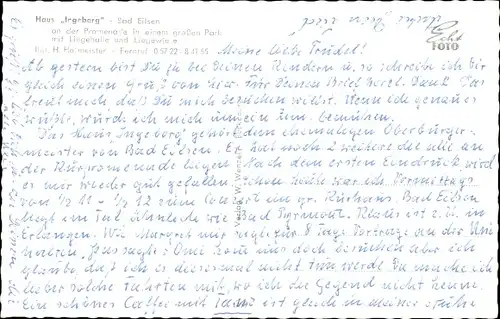 Haus „Ingeborg" - Bad Eilsen
an der Promenade in einem großen Park
mit Liegehalle und Liegewiese
Bes. H. Hofmeister - Fernruf 0 57 22 - 8 41 55
Echt
FOTO
Meine liebe Trudel!
Ab gestern bist Du zu bei Deinen Kindern u. so schreibe ich Dir
gleich einen Gruß von hier. Für Deinen Brief herzl. Dank! Es
freut mich daß Du mich besuchen willst. Wenn ich genaues
wüßte, würde ich mich um ein Zim. bemühen.
Das Haus Ingeborg gehört dem ehemaligen Oberbürger-
meister von Bad Eilsen. Er hat noch 2 weitere die alle an
der Kurpromenade liegen. Nach dem ersten Eindruck wird
es mir wieder gut gefallen. Schon heute war ich Vormittags
von ½ 11 - ½ 12 zum Concert im gr. Kurhaus. Bad Eilsen
liegt im Tal ähnlich wie Bad Pyrmont. Klaus ist z. Zt. in
Erlangen. Wie Margret mir sagte für 8 Tage Vorträge an der Uni
halten,
glaube, daß ich es diesesmal nicht tun werde. Da mache ich
lieber solche Fahrten mit, wo ich die Gegend nicht kenne.
Ein schönes Caffee mit Tanz ist gleich in meiner Nähe.
Verlag W.